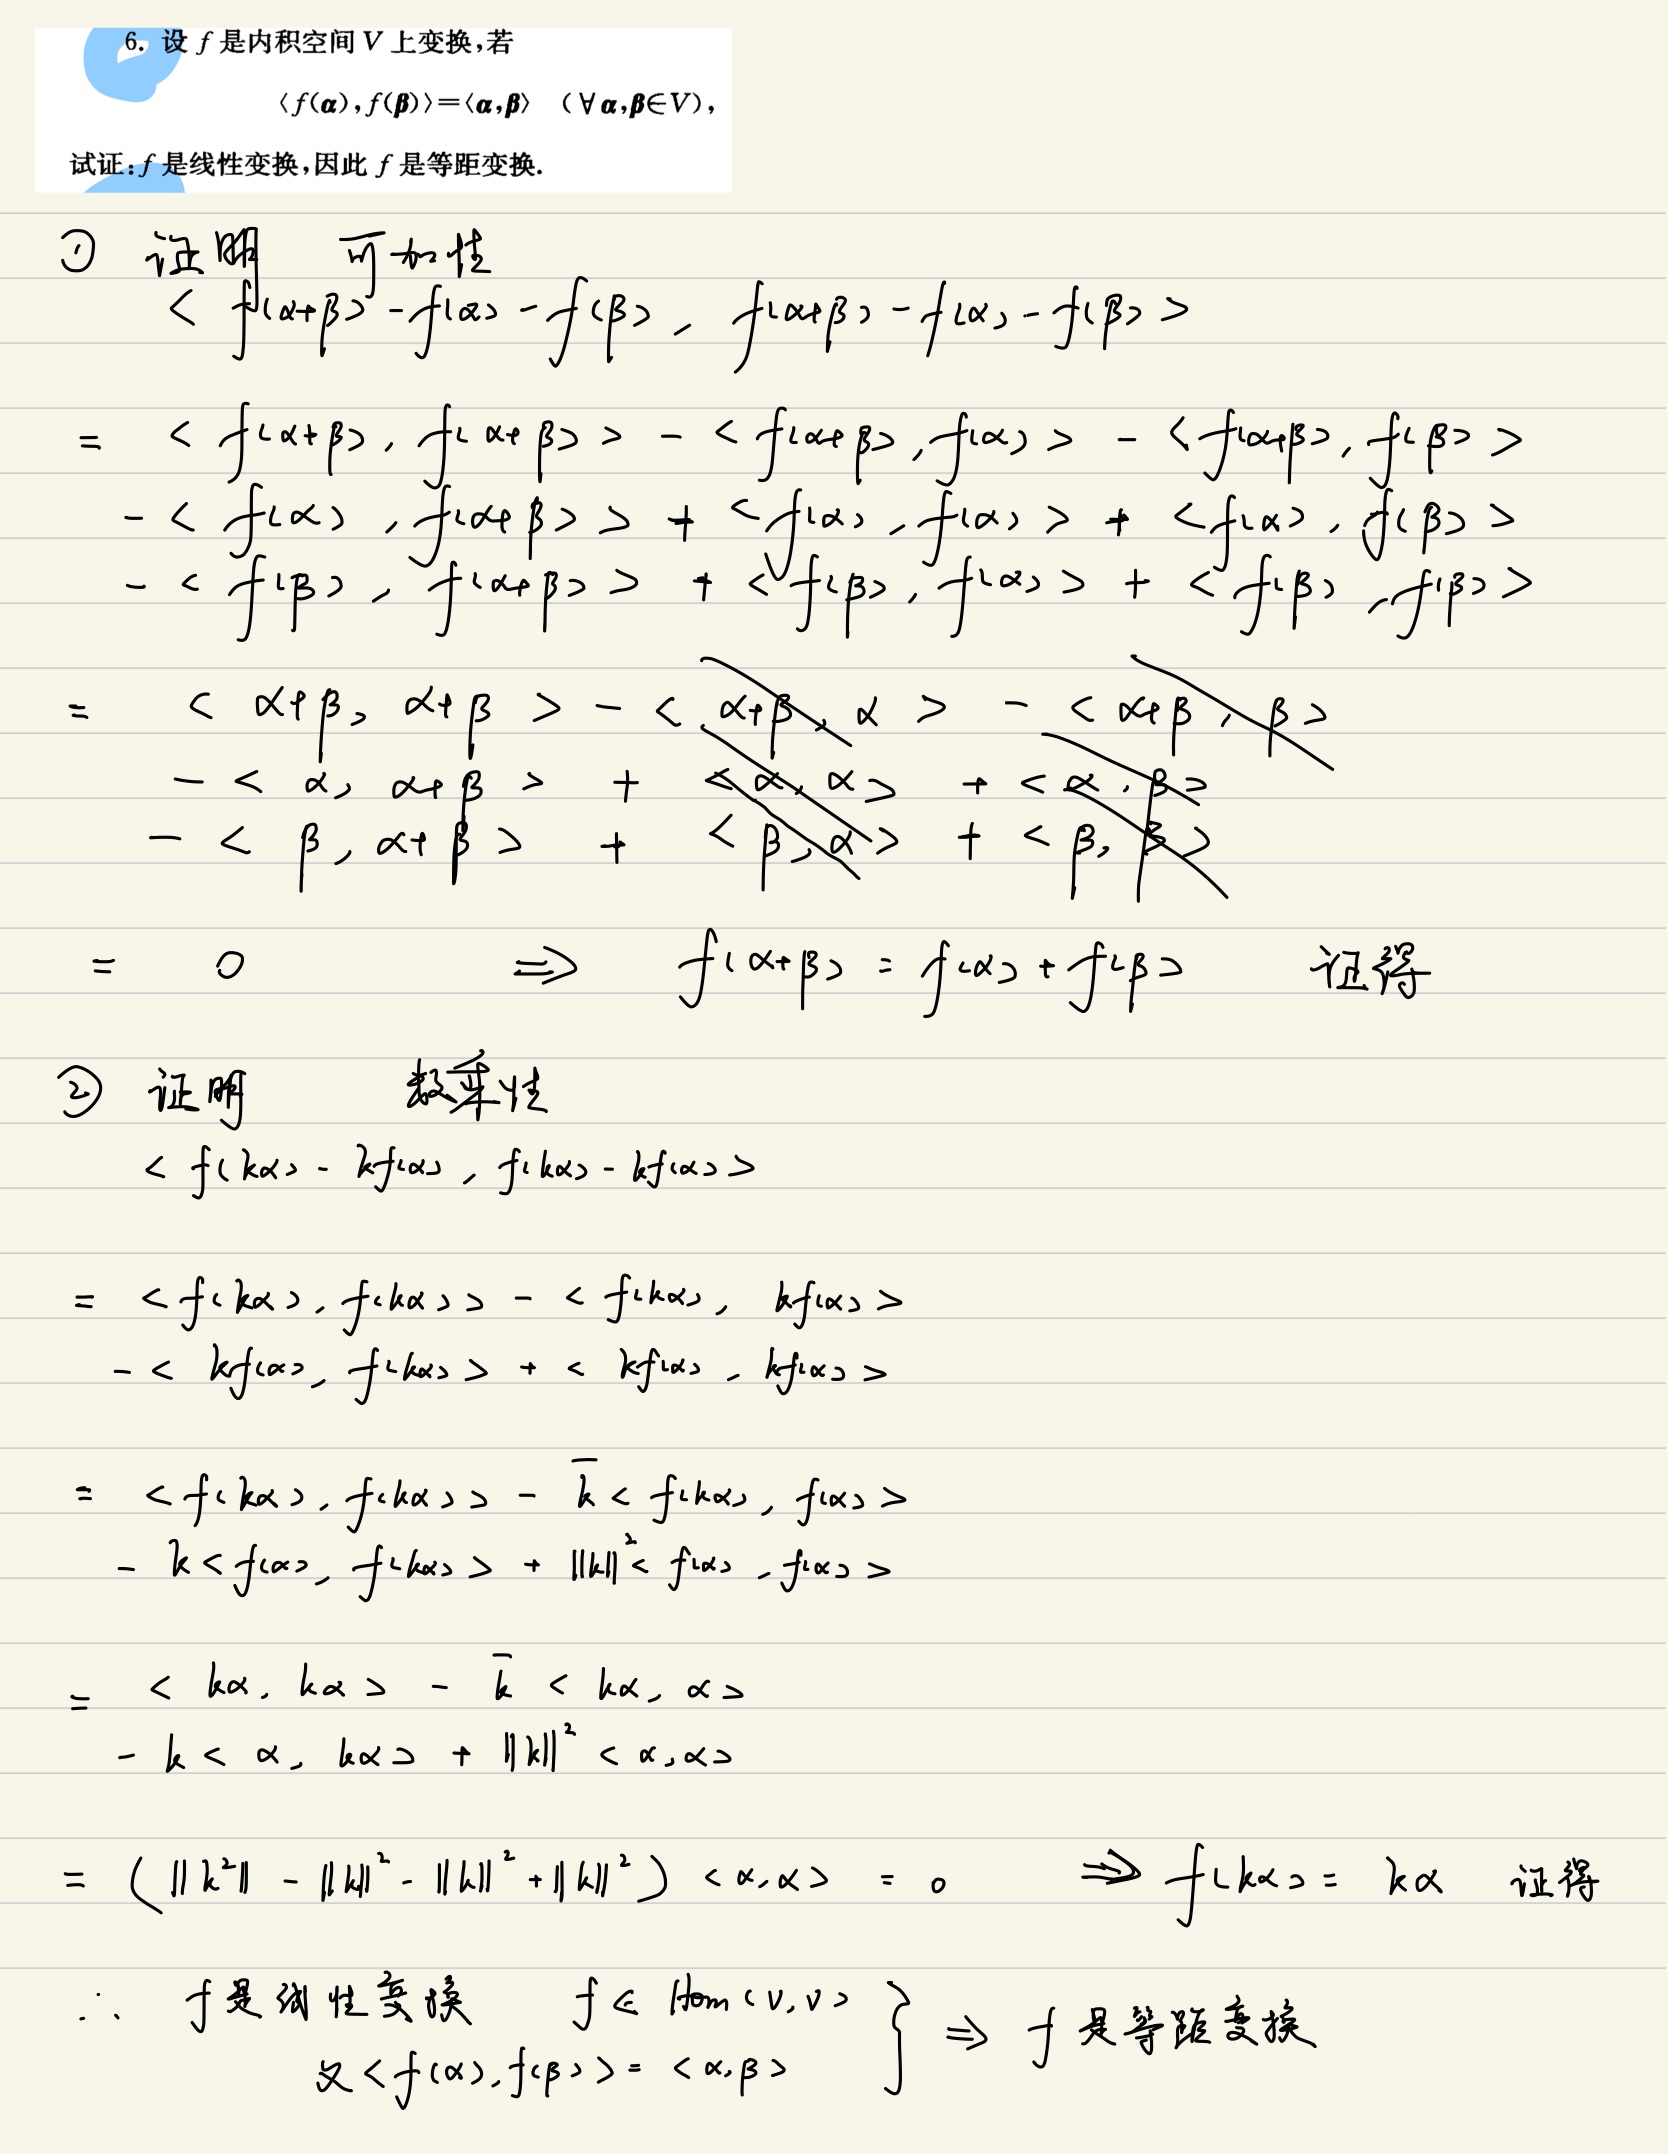 6. 设 f 是内积空间 V 上变换,若
⟨f(α),f(β)⟩=⟨α,β⟩ (∀α,β∈V),
试证:f 是线性变换,因此 f 是等距变换.
① 证明 可加性
< f(α+β) - f(α) - f(β), f(α+β) - f(α) - f(β) >
= < f(α+β), f(α+β) > - < f(α+β), f(α) > - < f(α+β), f(β) >
- < f(α), f(α+β) > + < f(α), f(α) > + < f(α), f(β) >
- < f(β), f(α+β) > + < f(β), f(α) > + < f(β), f(β) >
= < α+β, α+β > - < α+β, α > - < α+β, β >
- < α, α+β > + < α, α > + < α, β >
- < β, α+β > + < β, α > + < β, β >
= 0 ⇒ f(α+β) = f(α) + f(β) 证得
② 证明 数乘性
< f(kα) - kf(α), f(kα) - kf(α) >
= < f(kα), f(kα) > - < f(kα), kf(α) >
- < kf(α), f(kα) > + < kf(α), kf(α) >
= < f(kα), f(kα) > - k̄ < f(kα), f(α) >
- k < f(α), f(kα) > + ||k||² < f(α), f(α) >
= < kα, kα > - k̄ < kα, α >
- k < α, kα > + ||k||² < α, α >
= ( ||k²|| - ||k||² - ||k||² + ||k||² ) < α, α > = 0 ⇒ f(kα) = kα 证得
∴ f 是线性变换 f ∈ Hom(V, V) } ⇒ f 是等距变换
又 < f(α), f(β) > = < α, β >